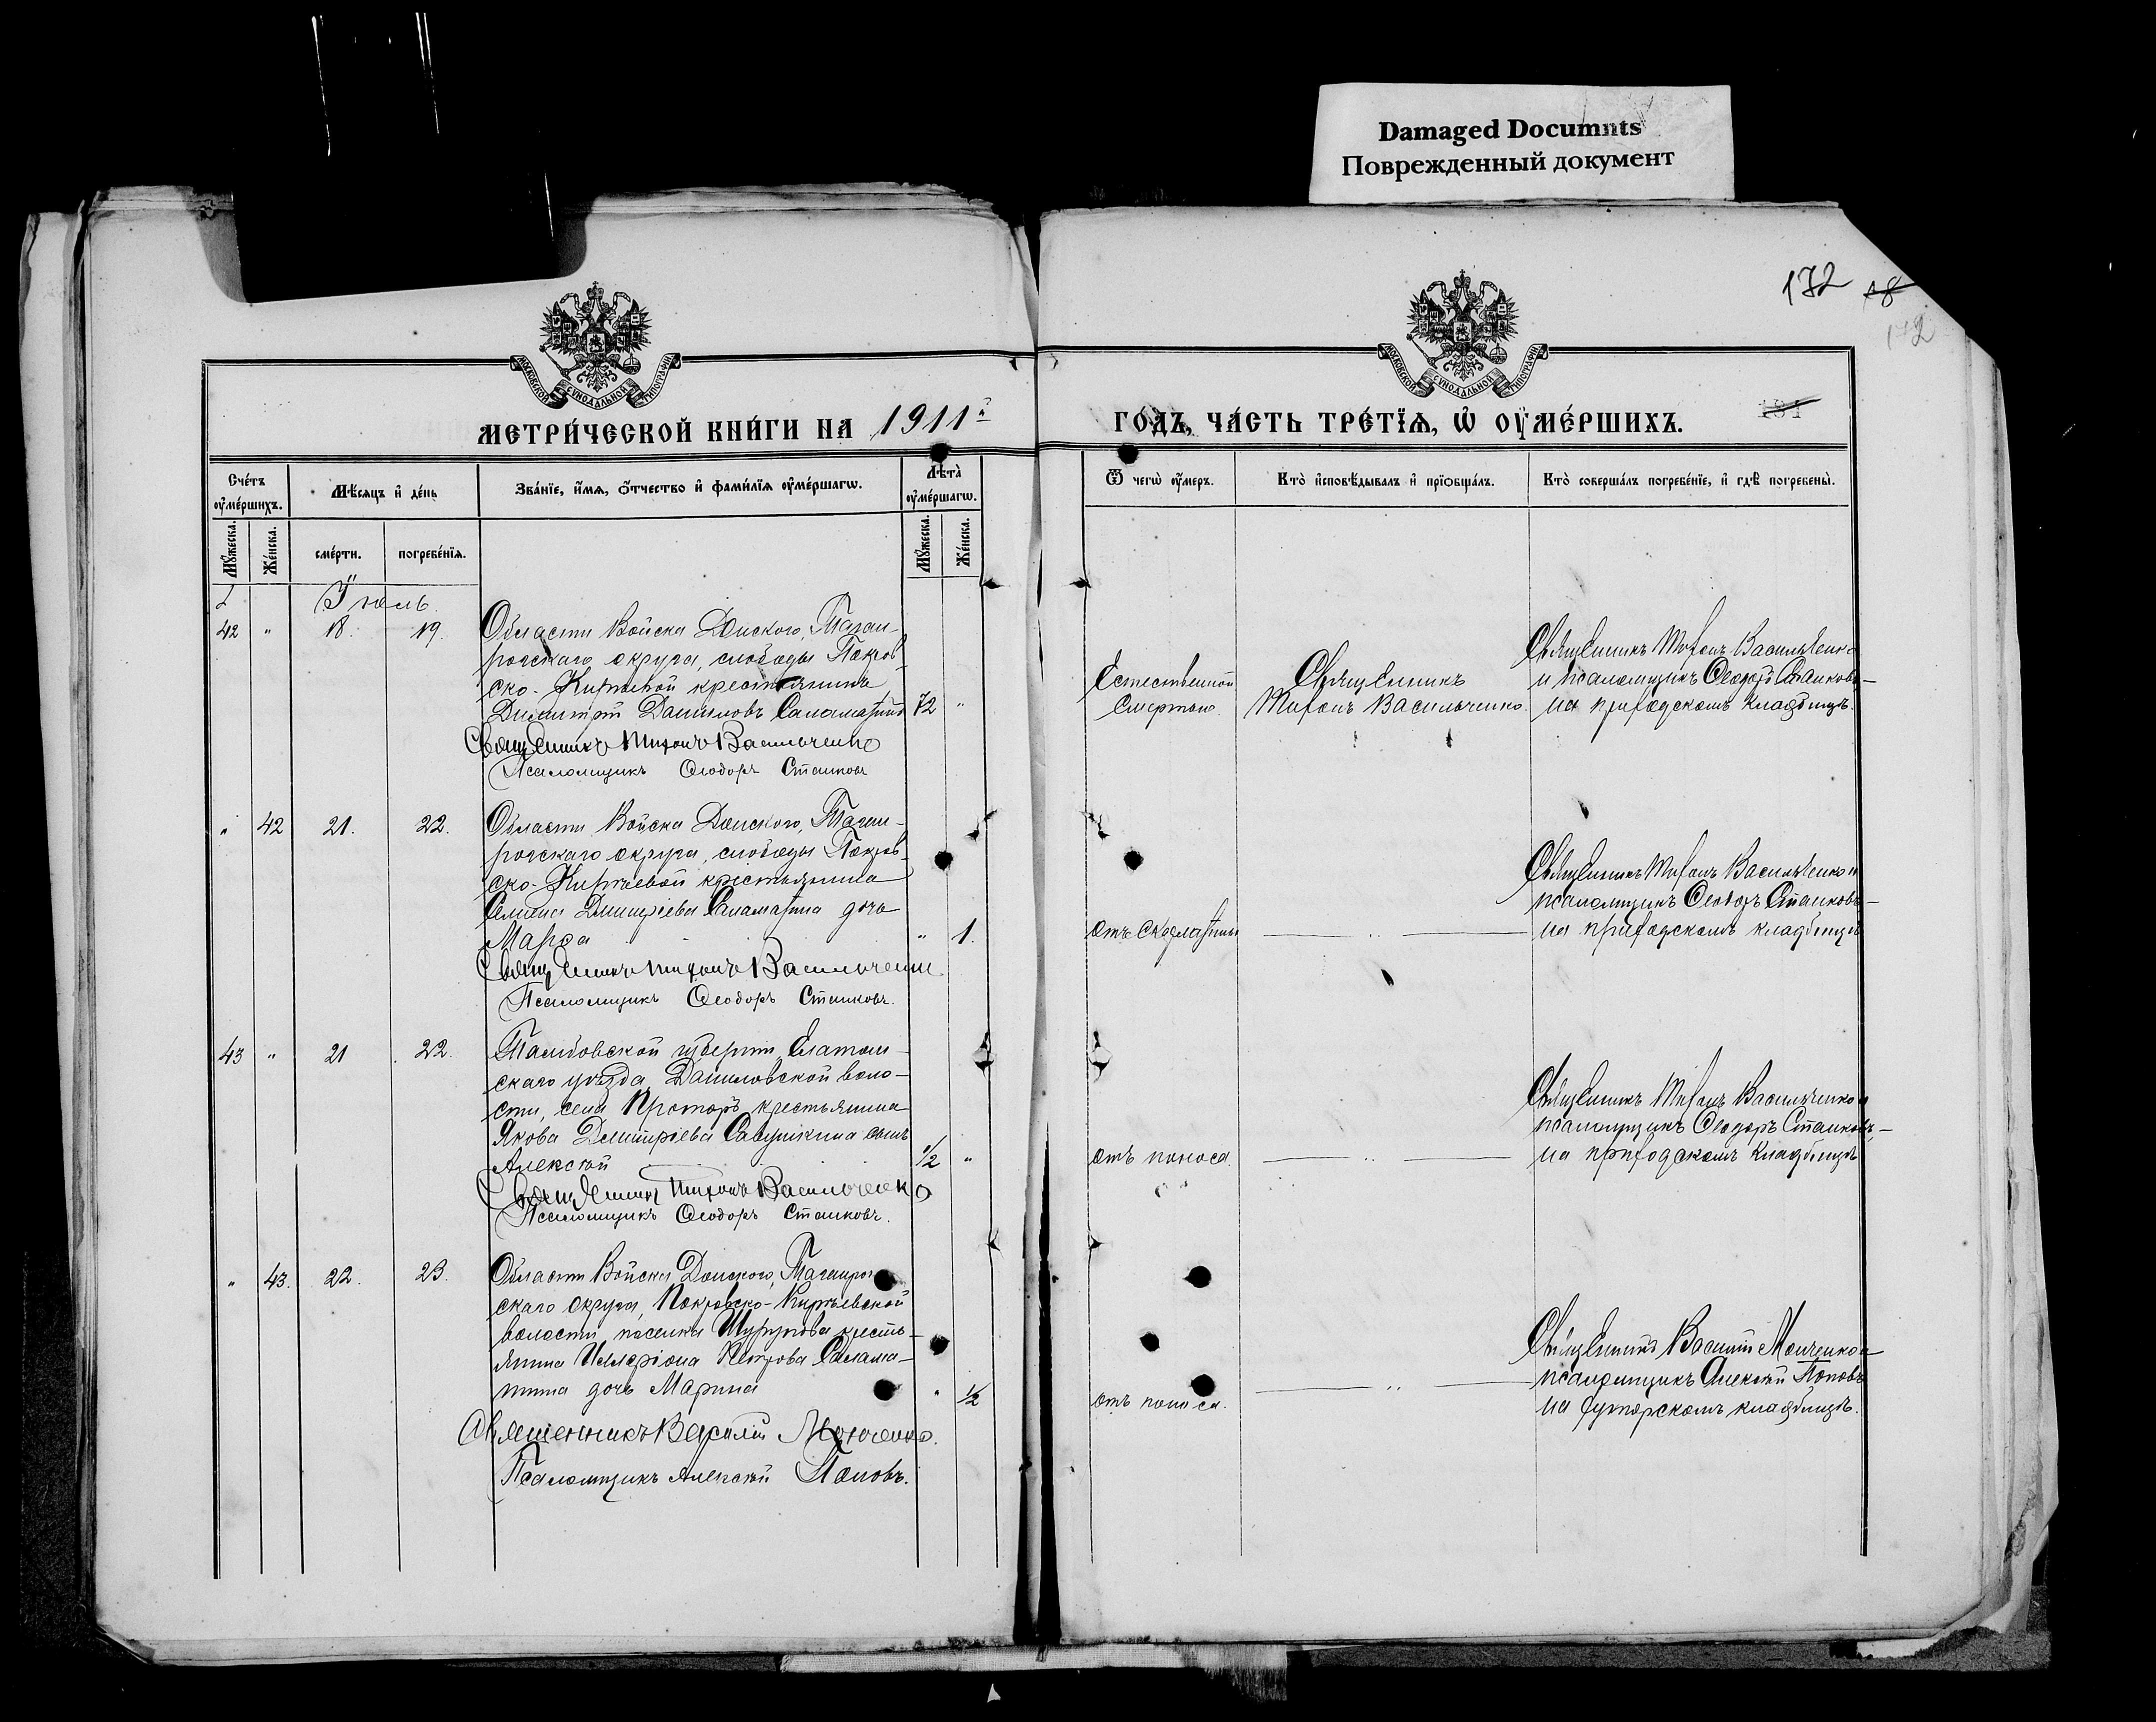 Damaged Documnts
Поврежденный документ
172 18
172
МОСКОВСКОЙ СѴНОДАЛЬНОЙ ТИПОГРАФІИ
МОСКОВСКОЙ СѴНОДАЛЬНОЙ ТИПОГРАФІИ
МЕТРИ́ЧЕСКОЙ КНИ́ГИ НА 1911й ГОДЪ, ЧА́СТЬ ТРЕ́ТЇѦ, Ѡ҆ ОУ҆МЕ́РШИХЪ.
Сче́тъ оу҆ме́ршихъ.
Мѣ́сѧцъ и҆ де́нь
Зва́нїе, и҆́мѧ, ѻ҆́тчество и҆ фами́лїѧ оу҆ме́ршагѡ.
Лѣ́та оу҆ме́ршагѡ.
Ѿ чегѡ̀ оу҆́меръ.
Кто̀ и҆сповѣ́дывалъ и҆ прїѻбща́лъ.
Кто̀ соверша́лъ погребе́нїе, и҆ гдѣ̀ погребены̀.
Мꙋ́жеска.
Же́нска.
сме́рти.
погребе́нїѧ.
Мꙋ́жеска.
Же́нска.
Іюль.
42 " 18. 19.
Области Войска Донского, Таган-
рогскаго округа, слободы Покров-
ско-Кирѣевой крестьянинъ
Димитрій Даниловъ Саламатинъ 72 "
Священникъ Тихонъ Васильченко
Псаломщикъ Ѳеодоръ Станковъ
Естественной
смертью.
Священникъ
Тихонъ Васильченко.
Священникъ Тихонъ Васильченко
и псаломщикъ Ѳеодоръ Станковъ –
на приходскомъ кладбищѣ.
" 42 21. 22.
Области Войска Донского, Таган-
рогскаго округа, слободы Покров-
ско-Кирѣевой крестьянина
Семена Димитріева Саламатина дочь
Марѳа " 1.
Священникъ Тихонъ Васильченко
Псаломщикъ Ѳеодоръ Станковъ.
отъ скарлатины
— " —
Священникъ Тихонъ Васильченко и
псаломщикъ Ѳеодоръ Станковъ –
на приходскомъ кладбищѣ
43 " 21 22.
Тамбовской губерніи, Елатом-
скаго уѣзда, Даниловской воло-
сти, села Протаръ крестьянина
Якова Димитріева Савушкина сынъ
Алексѣй 1/2 "
Священникъ Тихонъ Васильченко
Псаломщикъ Ѳеодоръ Станковъ.
отъ поноса.
— " —
Священникъ Тихонъ Васильченко и
псаломщикъ Ѳеодоръ Станковъ, –
на приходскомъ кладбищѣ
" 43. 22. 23.
Области Войска Донского, Таганрог
скаго округа, Покровско-Кирѣевской
волости, поселка Шурупова кресть-
янина Илларіона Петрова Салама-
тина дочь Марина " 1/2
Священникъ Василій Мончко.
Псаломщикъ Алексѣй Поповъ.
отъ поноса.
— " —
Священникъ Василій
псаломщикъ Алексѣй Поповъ
на хуторскомъ кладбищѣ.